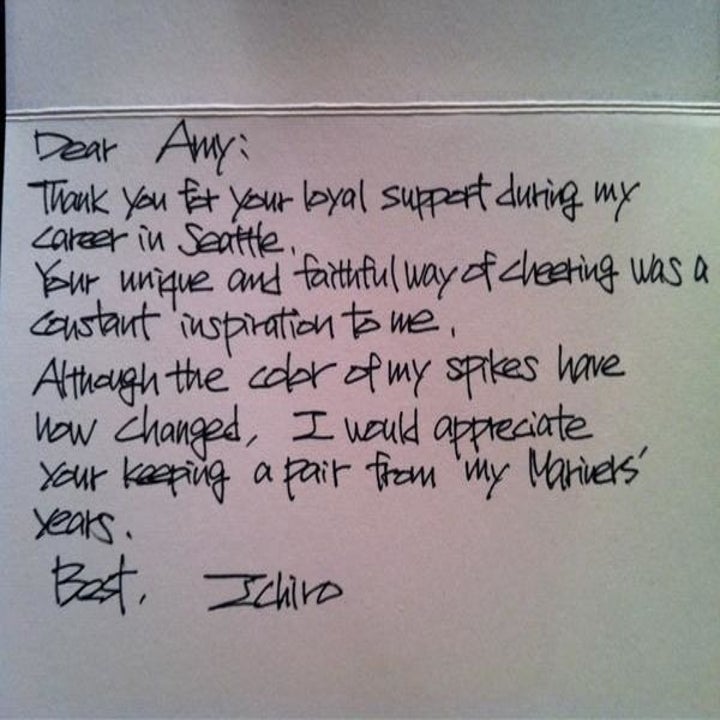 Dear Amy:
Thank you for your loyal support during my
career in Seattle.
Your unique and faithful way of cheering was a
constant inspiration to me.
Although the color of my spikes have
now changed, I would appreciate
your keeping a pair from my Mariners'
years.
Best, Ichiro